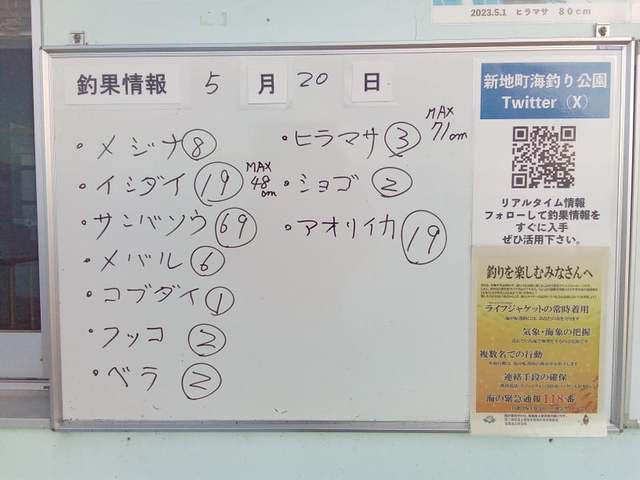 2023.5.1 ヒラマサ 80cm
釣果情報 5 月 20 日
・メジナ 8
・イシダイ 19 MAX 48cm
・サンバソウ 69
・メバル 6
・コブダイ 1
・フッコ 2
・ベラ 2
・ヒラマサ 3 MAX 71cm
・ショゴ 2
・アオリイカ 19
新地町海釣り公園
Twitter（X）
リアルタイム情報
フォローして釣果情報を
すぐに入手
ぜひ活用下さい。
釣りを楽しむみなさんへ
ライフジャケットの常時着用
気象・海象の把握
複数名での行動
連絡手段の確保
海の緊急通報118番